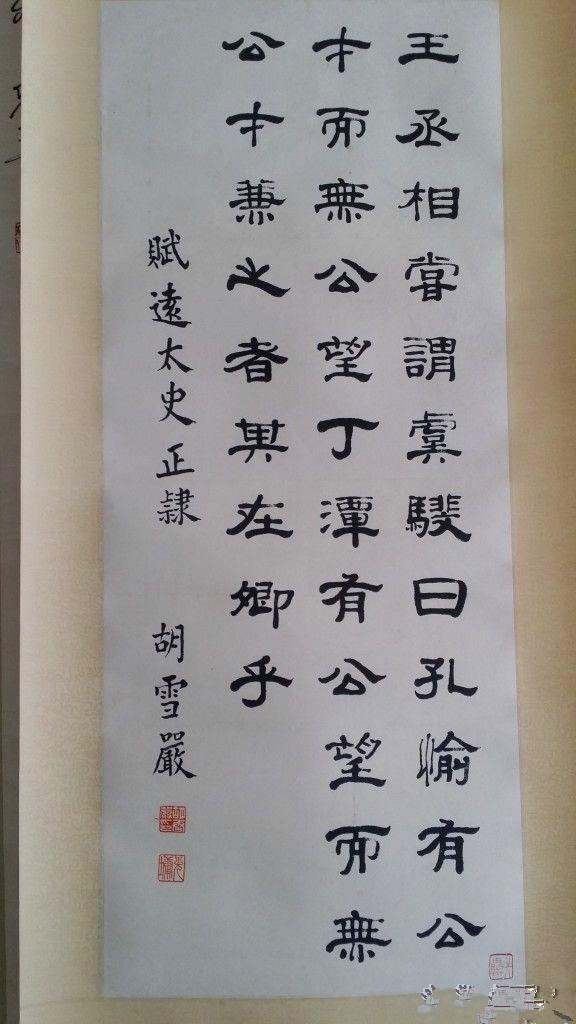 王丞相嘗謂虞𩥇曰孔愉有公
才而無公望丁潭有公望而無
公才兼之者其在卿乎
賦遠太史正隸
胡雪嚴